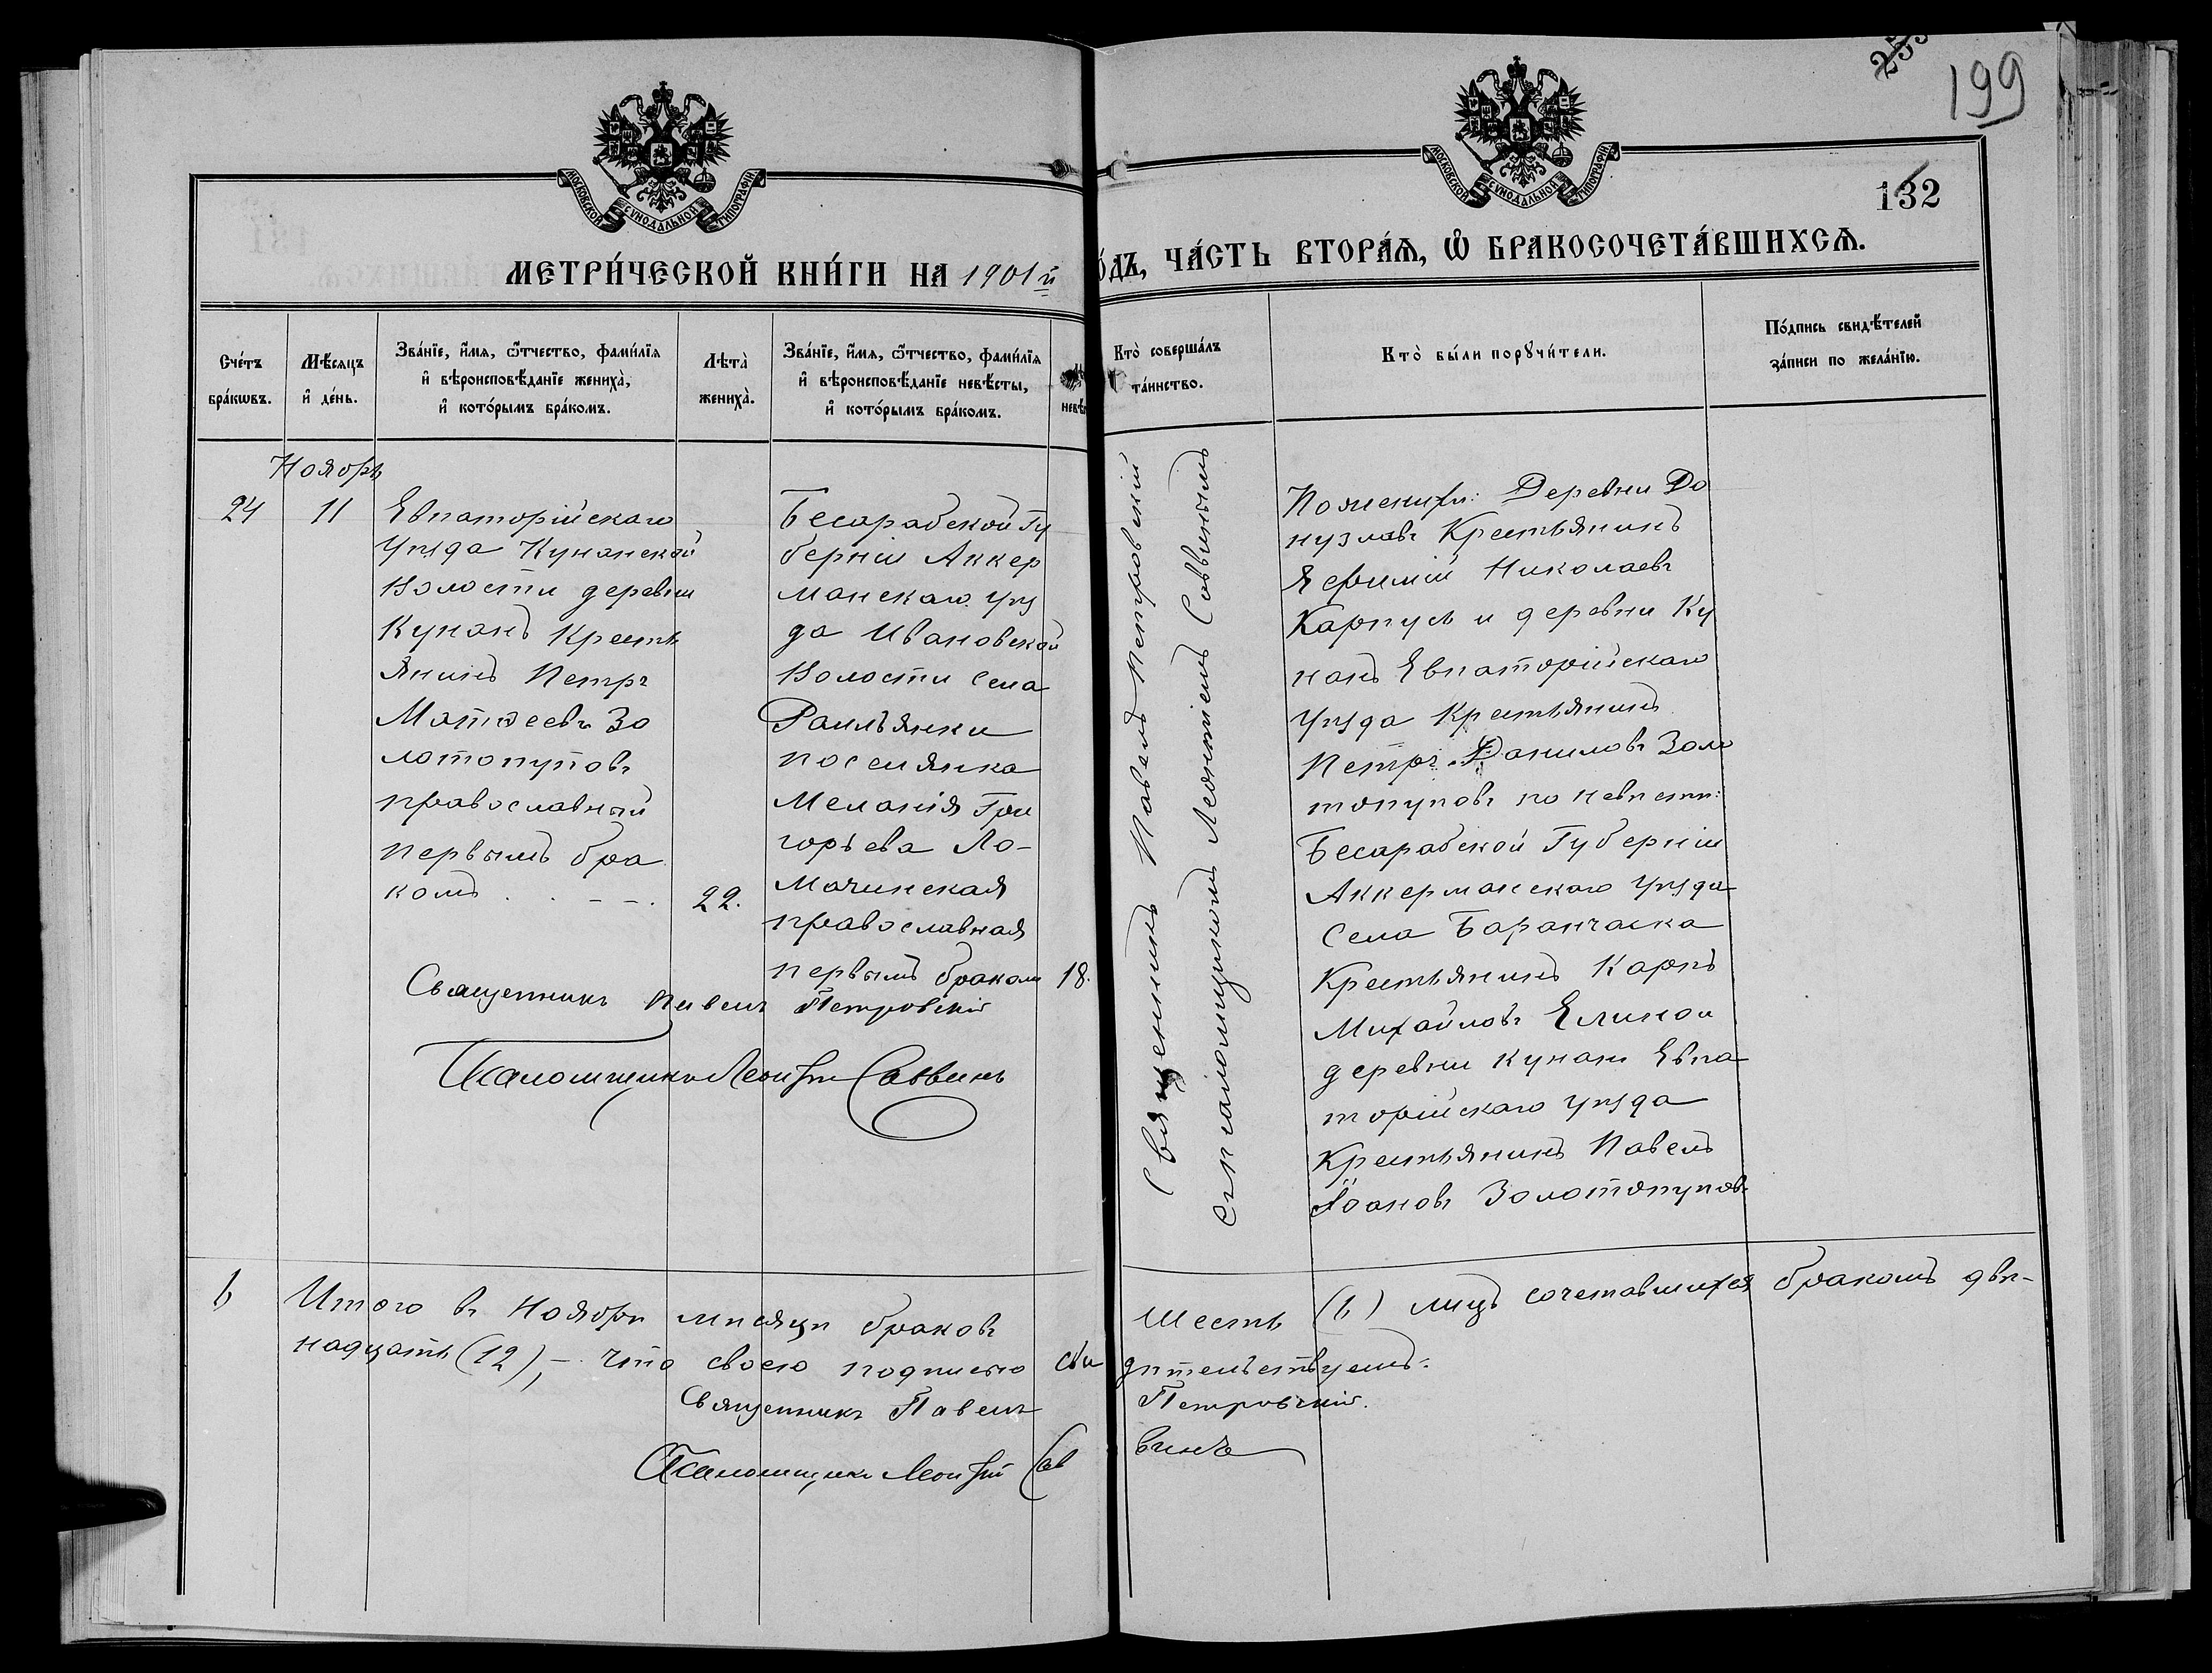 199
132
МОСКОВСКОЙ СѴНОДАЛЬНОЙ ТИПОГРАФІИ
МОСКОВСКОЙ СѴНОДАЛЬНОЙ ТИПОГРАФІИ
МЕТРИ́ЧЕСКОЙ КНИ́ГИ НА 1901й
О́ДЪ, ЧА́СТЬ ВТОРА́Ѧ, Ѽ БРАКОСОЧЕТА́ВШИХСѦ.
Сче́тъ бра́кѡвъ.
Мѣ́сяцъ и҆ де́нь.
Зва́нїе, и҆́мѧ, ѻ҆́тчество, фами́лїѧ
и҆ вѣроисповѣ́данїе жениха̀,
и҆ кото́рымъ бра́комъ.
Лѣта̀ жениха̀.
Зва́нїе, и҆́мѧ, ѻ҆́тчество, фами́лїѧ
и҆ вѣроисповѣ́данїе невѣ́сты,
и҆ кото́рымъ бра́комъ.
невѣ
Кто̀ соверша́лъ
та́инство.
Кто̀ бы́ли порꙋчи́тели.
По́дпись свидѣ́телей
за́писи по жела́нїю.
Ноябрь
24
11
Евпаторійскаго
Уѣзда Кунанской
Волости деревни
Кунанъ Кресть
янинъ Петръ
Матѳеевъ Зо
лотопуповъ
православный
первымъ бра
комъ . . - - .
22.
Бесарабской Гу
берніи Аккер
манскаго Уѣз
да Ивановской
Волости Села
Раильянки
поселянка
Меланія Гри
горьева Ло-
мачинская
православная
первымъ бракомъ
18.
Священникъ Павелъ Петровскій
Псаломщикъ Леонтій Саввинъ
Священникъ Павелъ Петровскій
съ псаломщикомъ Леонтіемъ Саввинымъ
По женихѣ: Деревни До
нузлавъ Крестьянинъ
Яфимій Николаевъ
Карпусь и деревни Ку
нанъ Евпаторійскаго
Уѣзда Крестьянинъ
Петръ Даниловъ Золо
топуповъ по невѣстѣ:
Бесарабской Губерніи
Аккерманскаго Уѣзда
Села
Крестьянинъ Карпъ
Михайловъ
деревни Кунанъ Евпа
торійскаго Уѣзда
Крестьянинъ Павелъ
Іоановъ Золотопуповъ
6 Итого въ Ноябрѣ мѣсяцѣ браковъ шесть (6) лицъ сочетавшихся бракомъ двѣ-
надцать (12), - что своею подписью свидѣтельствуемъ:
Священникъ Павелъ Петровскій.
Псаломщикъ Леонтій Саввинъ